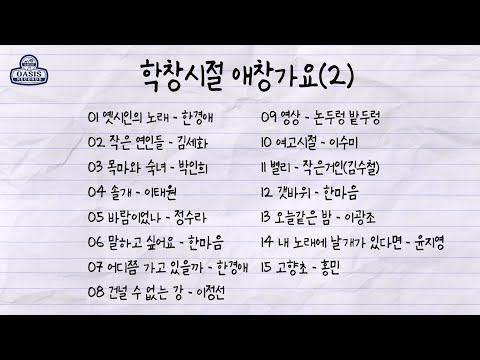 OASIS
RECORDS
학창시절 애창가요(2)
01 옛시인의 노래 - 한경애
02 작은 연인들 - 김세화
03 목마와 숙녀 - 박인희
04 솔개 - 이태원
05 바람이었나 - 정수라
06 말하고 싶어요 - 한마음
07 어디쯤 가고 있을까 - 한경애
08 건널 수 없는 강 - 이정선
09 영상 - 논두렁 밭두렁
10 여고시절 - 이수미
11 별리 - 작은거인(김수철)
12 갯바위 - 한마음
13 오늘같은 밤 - 이광조
14 내 노래에 날개가 있다면 - 윤지영
15 고향초 - 홍민